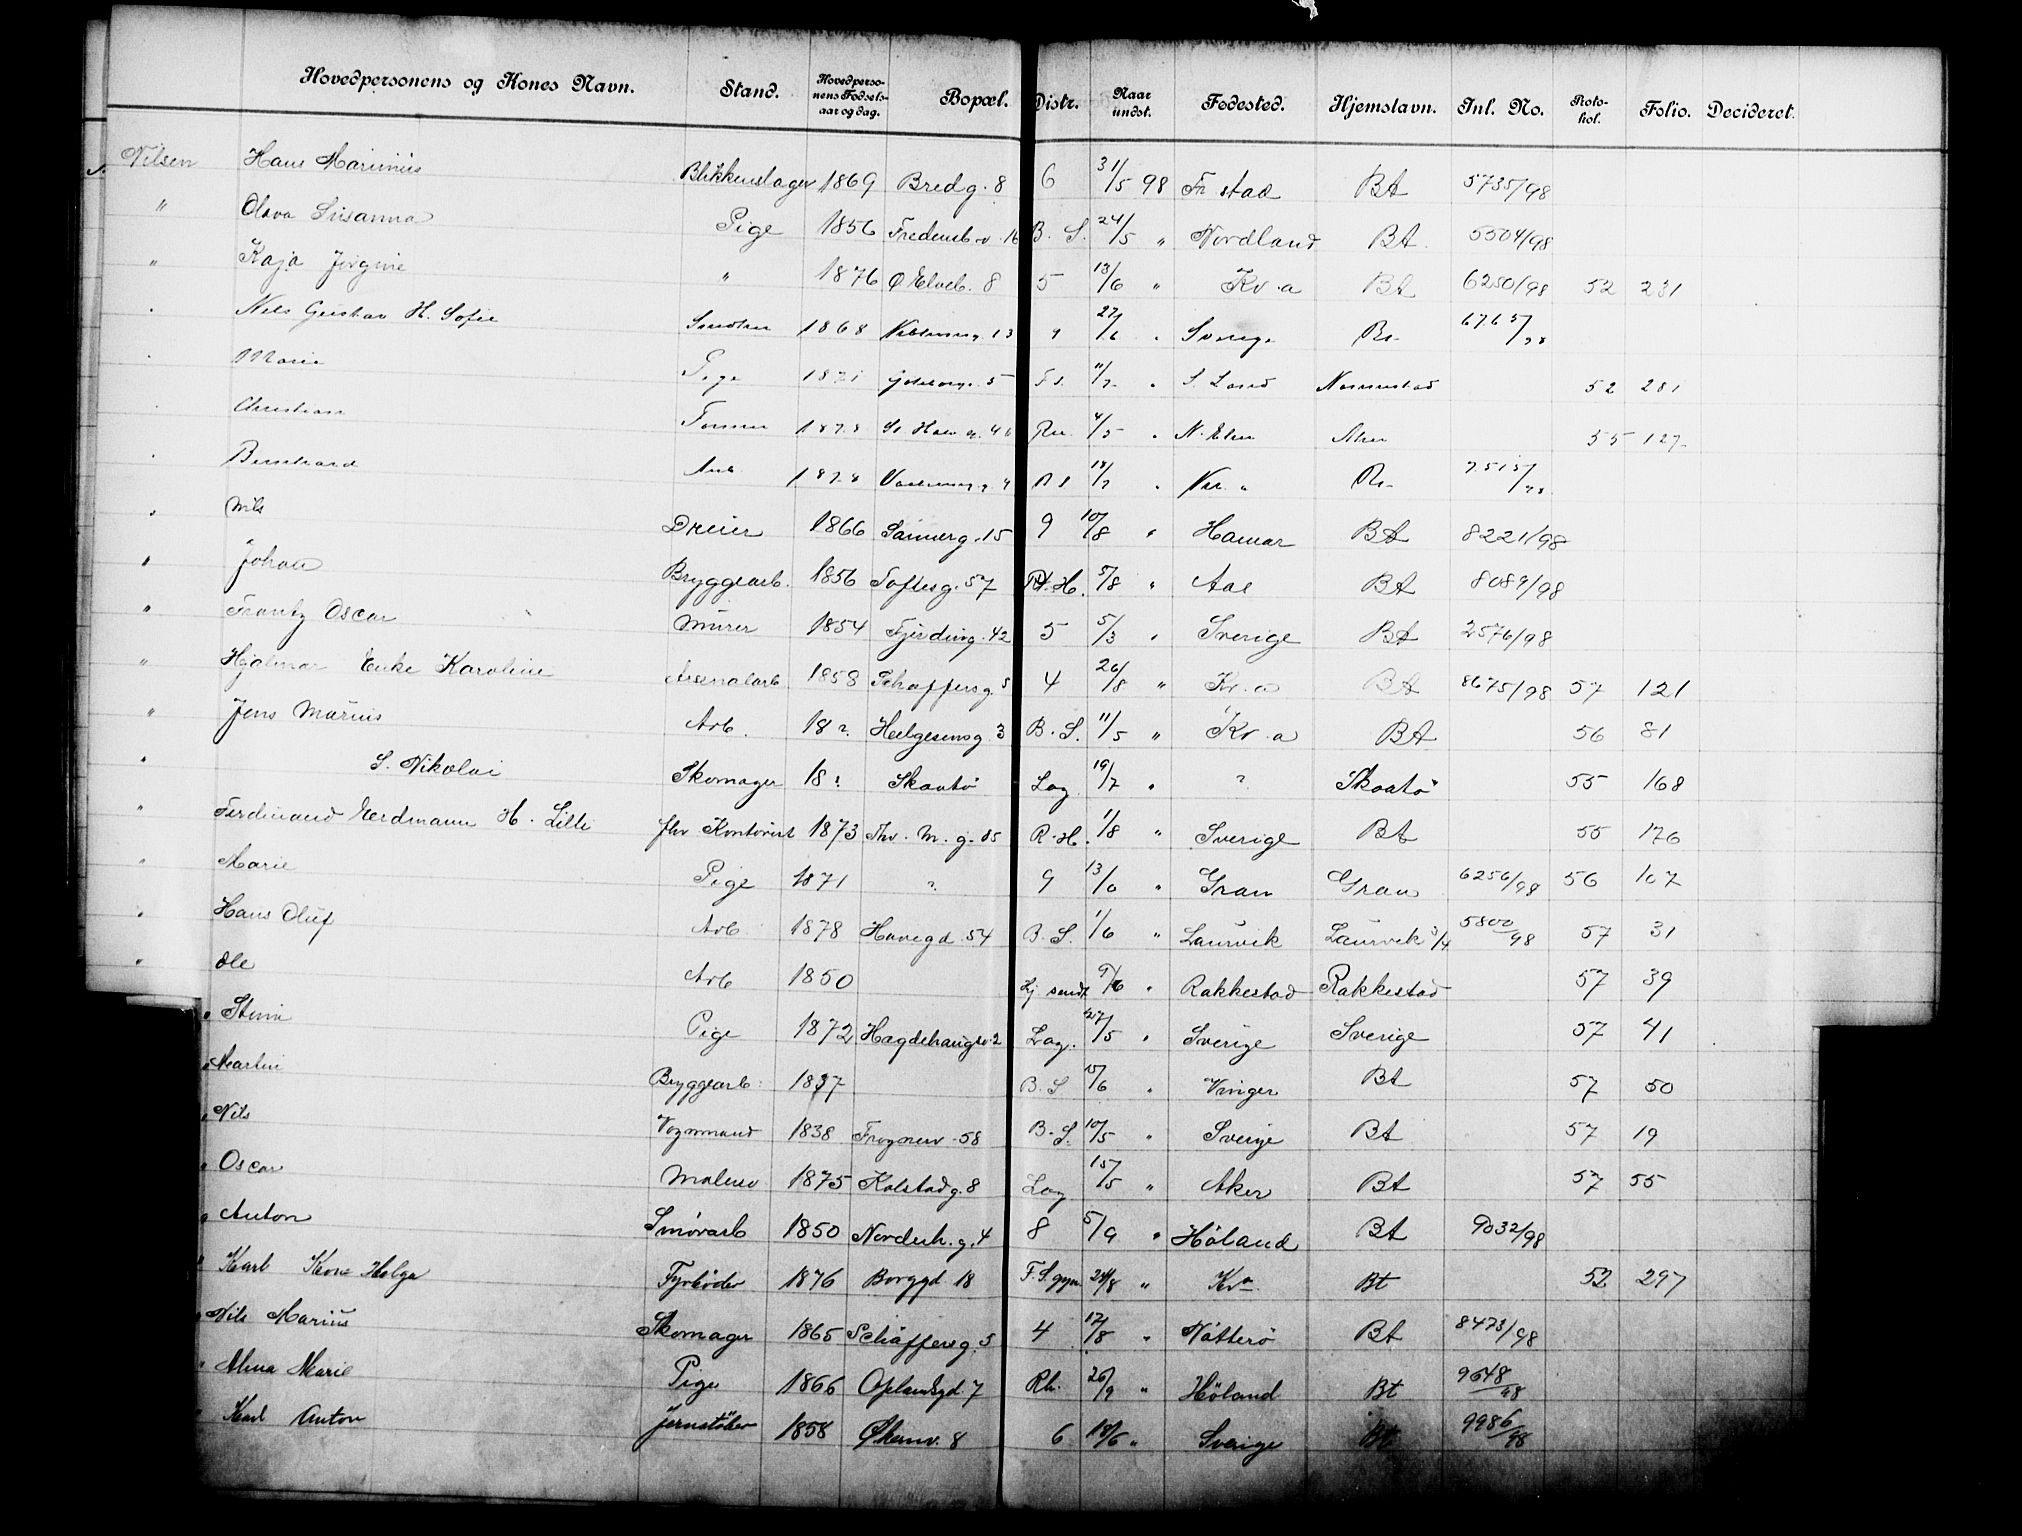 Hovedpersonens og Kones Navn. Stand. Hovedperso-nens Fødsels-aar og dag. Bopæl. Distr. Naar undst. Fødested. Hjemstavn. Inl. No. Proto-kol. Folio. Decideret.
Nilsen Hans Marinius Blikkenslager 1869 Bredg. 8 6 31/5 98 Fr stad Bt 5735/98
" Olava Susanna Pige 1856 Fredensb.v. 16 B. S. 24/5 " Nordland Bt. 5504/98
" Kaja Jørgine " 1876 Ø Elveb. 8 5 13/6 " Kr.a Bt 6250/98 52 231
Nils Gustav H. Sofie 1868 27/6 Sverige
Marie Pige 1871 11/7 52 281
Christian 4/5 55 127
Bernhard Arb 18/7
" Nils Dreier 1866 Sannerg. 15 9 10/8 " Hamar Bt 8221/98
" Johan Bryggearb. 1856 Toftesg. 57 R.H. 5/8 " Aas Bt 8089/98
" Frantz Oscar Murer 1854 Fjerding. 42 5 5/3 " Sverige Bt 2576/98
" Hjalmar Enke Karoline Arsenalarb 1858 Schaffersg. 5 4 26/8 " Kr.a Bt 8675/98 57 121
" Jens Marius Arb. 18 ? Helgesensg. 3 B. S. 11/5 " Kr.a Bt 56 81
" S. Nikolai Skomager 18 ? Skaatø Lag 19/7 " ? Skaatø 55 168
" Ferdinand Erdmann H. Lilli fhv Kontorist 1873 Thv. M. g. 85 R.H. 1/8 " Sverige Bt 55 176
" Marie Pige 1871 ? 9 13/6 " Gran Gran 6256/98 56 107
" Hans Oluf Arb 1878 Havegd. 54 B. S. 1/6 " Laurvik Laurvik 3/4 5800/98 57 31
" Ole Arb 1850 Hj sendt 9/6 " Rakkestad Rakkestad 57 39
" Stina Pige 1872 Hagdehaugsv. 2 Lag. 27/5 " Sverige Sverige 57 41
" Martin Bryggearb. 1837 B. S 15/6 " Vinger Bt 57 50
" Nils Vognmand 1838 Frognerv. 58 B. S. 10/5 " Sverige Bt 57 19
" Oscar Malersv 1875 Kolstadg. 8 Lag 15/5 " Aker Bt 57 55
" Anton Smørarb 1850 Norderh. g. 4 8 5/9 " Høland Bt 9032/98
" Karl Kone Helga Fyrbøder 1876 Borggd 18 F. S. gym 24/8 " Kra Bt 52 297
" Nils Marius Skomager 1865 Schaffersg. 5 4 17/8 " Nøtterø Bt 8473/98
" Alma Marie Pige 1866 Oplandsgd 7 Rh. 26/9 " Høland Bt 9648/98
" Karl Anton Jernstøber 1858 Økernv. 8 6 18/6 " Sverige Bt 9986/98